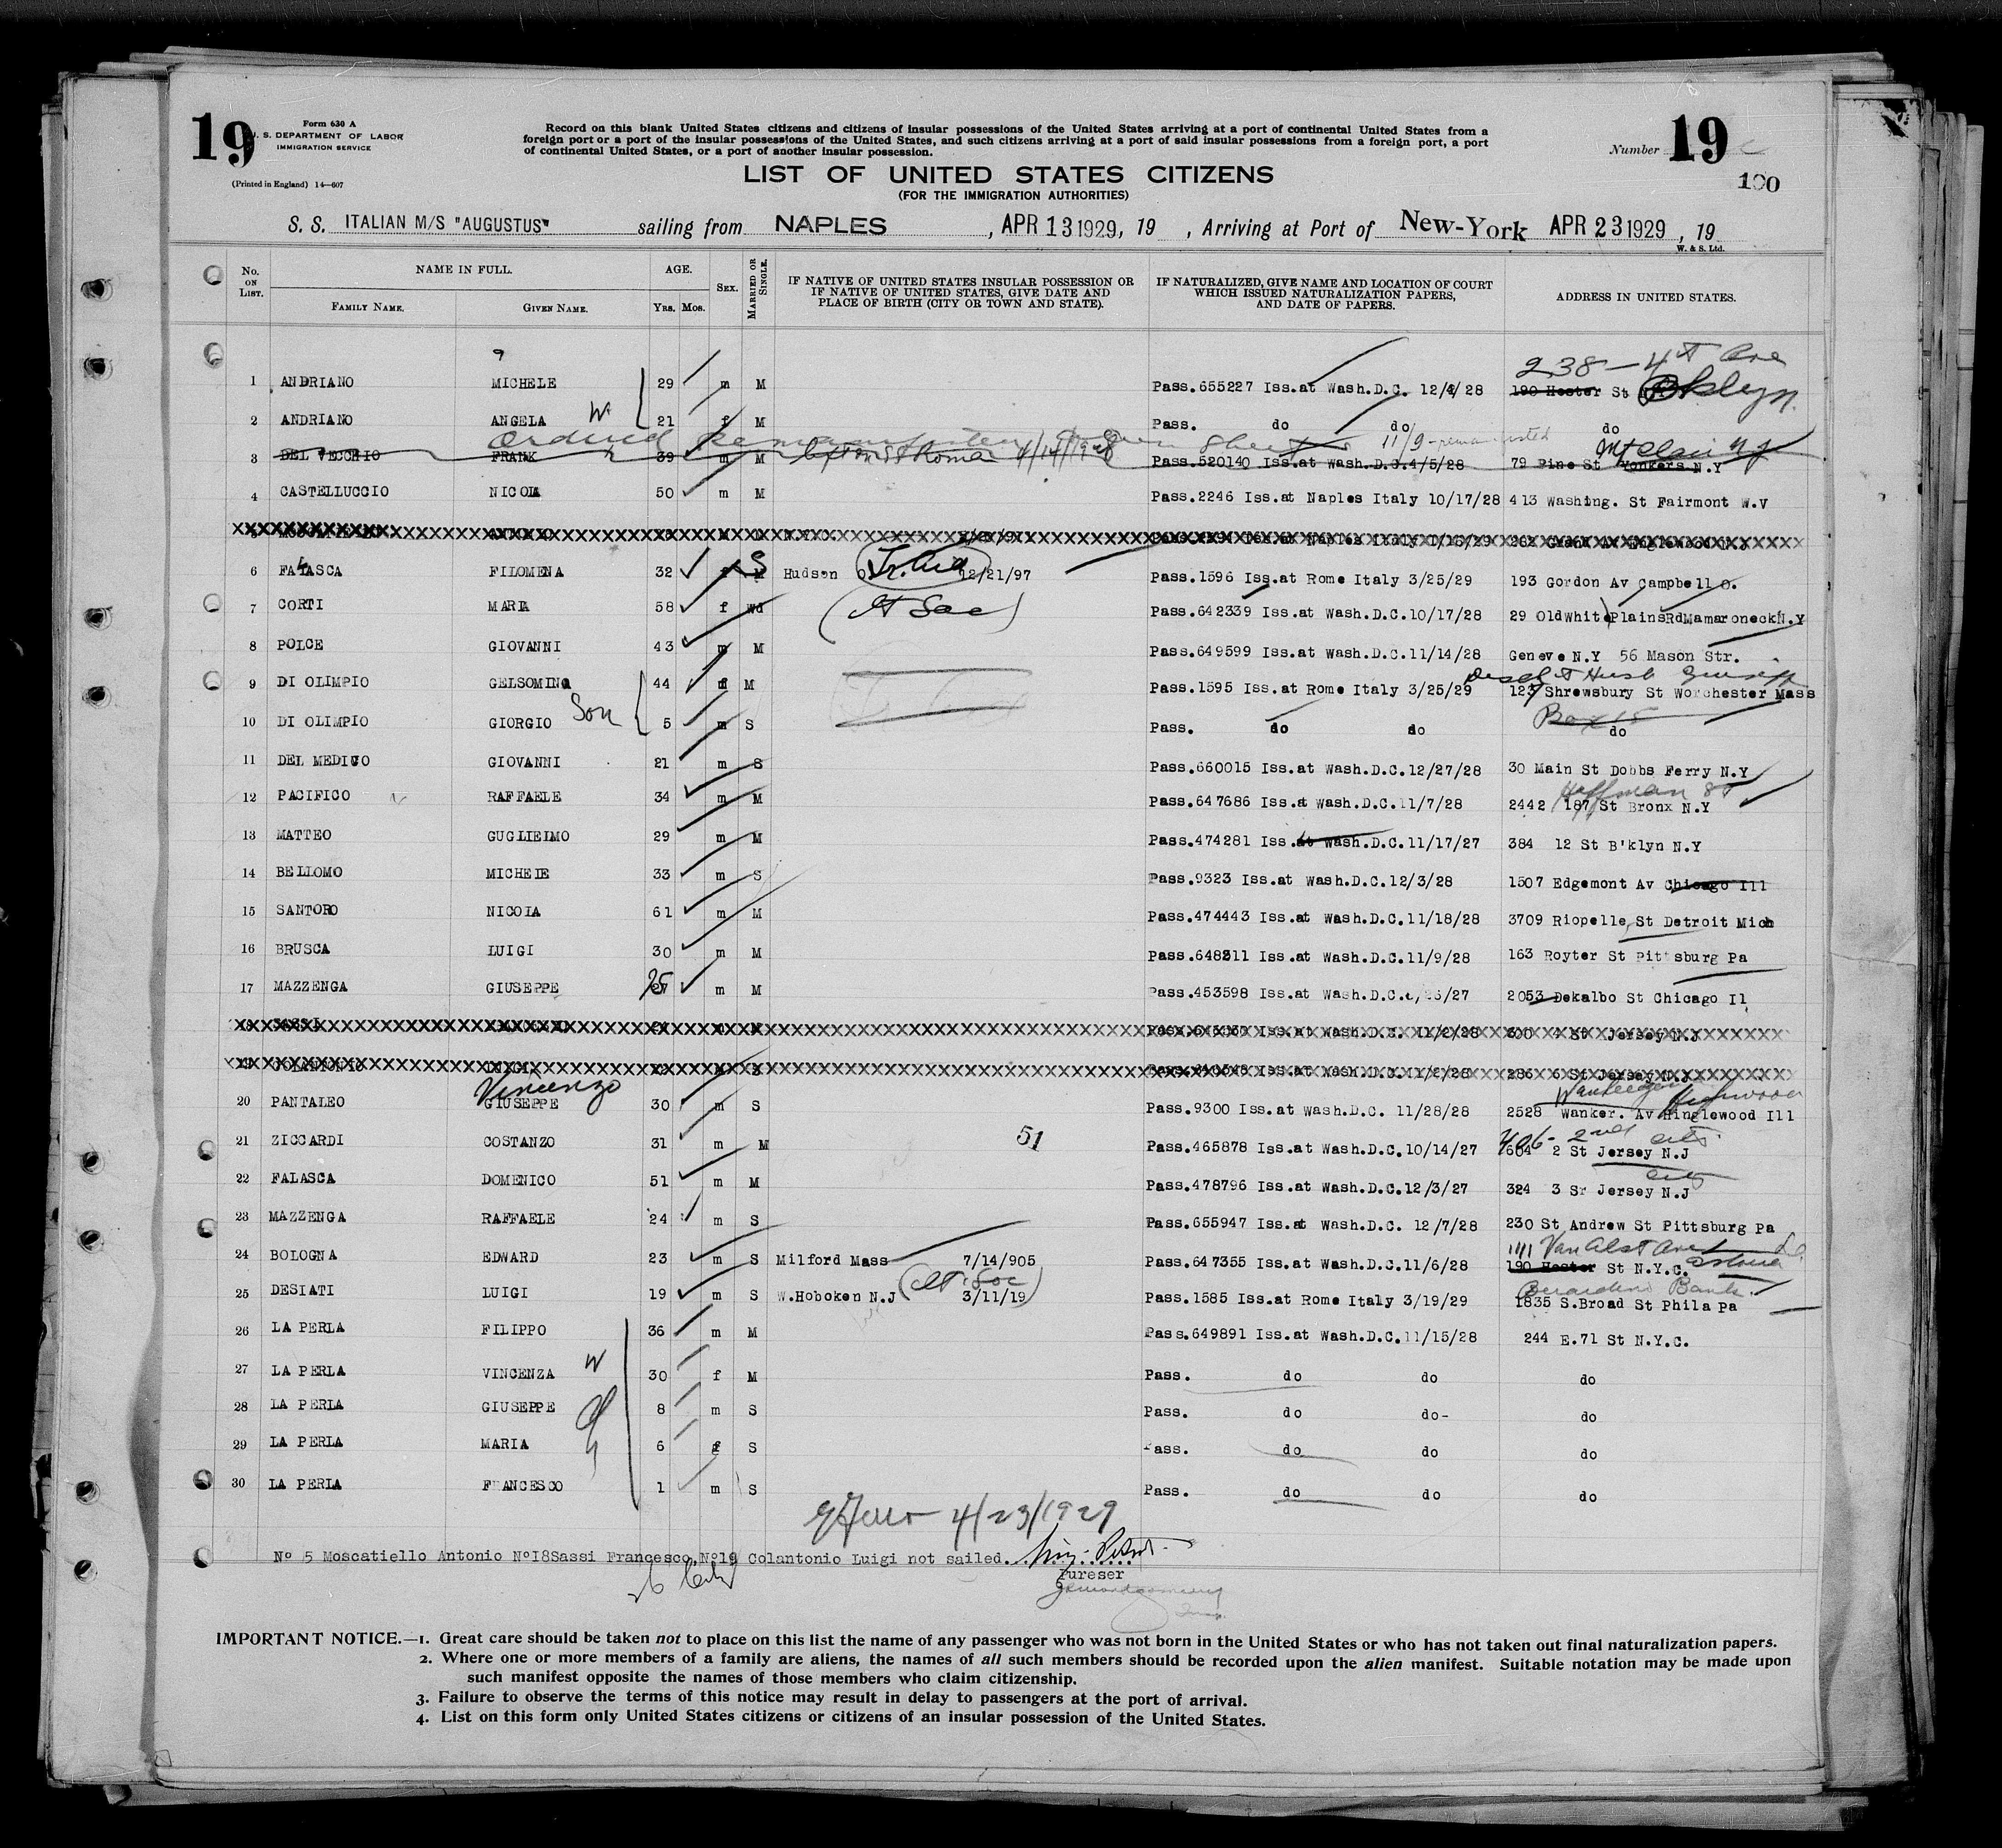 19
Form 630 A
U. S. DEPARTMENT OF LABOR
IMMIGRATION SERVICE
(Printed in England) 14—607
Record on this blank United States citizens and citizens of insular possessions of the United States arriving at a port of continental United States from a
foreign port or a port of the insular possessions of the United States, and such citizens arriving at a port of said insular possessions from a foreign port, a port
of continental United States, or a port of another insular possession.
Number 19
100
LIST OF UNITED STATES CITIZENS
(FOR THE IMMIGRATION AUTHORITIES)
S. S. ITALIAN M/S "AUGUSTUS" sailing from NAPLES , APR 13 1929, 19 , Arriving at Port of New-York APR 23 1929 , 19
W. & S. Ltd.
No. ON LIST. NAME IN FULL. FAMILY NAME. GIVEN NAME. AGE. YRS. MOS. SEX. MARRIED OR SINGLE.
IF NATIVE OF UNITED STATES INSULAR POSSESSION OR
IF NATIVE OF UNITED STATES, GIVE DATE AND
PLACE OF BIRTH (CITY OR TOWN AND STATE).
IF NATURALIZED, GIVE NAME AND LOCATION OF COURT
WHICH ISSUED NATURALIZATION PAPERS,
AND DATE OF PAPERS.
ADDRESS IN UNITED STATES.
238 – 4th Ave
1 ANDRIANO MICHELE 29 m M Pass.655227 Iss.at Wash.D.C. 12/4/28 190 Hester St Bklyn.
2 ANDRIANO ANGELA W 21 f M Pass. do do do
Ordered 11/9 - remanifested
3 DEL VECCHIO FRANK 39 m M Pass.520140 Iss.at Wash.D.C.4/5/28 79 Pine St Yonkers N.Y
4 CASTELLUCCIO NICOLA 50 m M Pass.2246 Iss.at Naples Italy 10/17/28 413 Washing. St Fairmont W.V
6 FALASCA FILOMENA 32 f S Hudson 12/21/97 Pass.1596 Iss.at Rome Italy 3/25/29 193 Gordon Av Campbell O.
7 CORTI MARIA 58 f Wd Pass.642339 Iss.at Wash.D.C.10/17/28 29 OldWhitePlainsRdMamaroneckN.Y
8 POLCE GIOVANNI 43 m M Pass.649599 Iss.at Wash.D.C.11/14/28 Geneve N.Y 56 Mason Str.
9 DI OLIMPIO GELSOMINA 44 f M Pass.1595 Iss.at Rome Italy 3/25/29 127 Shrewsbury St Worchester Mass
Box 15
10 DI OLIMPIO GIORGIO Son 5 m S Pass. do do do
11 DEL MEDICO GIOVANNI 21 m S Pass.660015 Iss.at Wash.D.C.12/27/28 30 Main St Dobbs Ferry N.Y
Hoffman St
12 PACIFICO RAFFAELE 34 m M Pass.647686 Iss.at Wash.D.C.11/7/28 2442 187 St Bronx N.Y
13 MATTEO GUGLIELMO 29 m M Pass.474281 Iss.at Wash.D.C.11/17/27 384 12 St B'klyn N.Y
14 BELLOMO MICHELE 33 m S Pass.9323 Iss.at Wash.D.C.12/3/28 1507 Edgemont Av Chicago Ill
15 SANTORO NICOLA 61 m M Pass.474443 Iss.at Wash.D.C.11/18/28 3709 Riopelle St Detroit Mich
16 BRUSCA LUIGI 30 m M Pass.648211 Iss.at Wash.D.C.11/9/28 163 Royter St Pittsburg Pa
17 MAZZENGA GIUSEPPE 25 m M Pass.453598 Iss.at Wash.D.C. 2053 Dekalbo St Chicago Il
Vincenzo
20 PANTALEO GIUSEPPE 30 m S Pass.9300 Iss.at Wash.D.C. 11/28/28 2528 Wanker. Av Hinglewood Ill
406 - 2nd City
21 ZICCARDI COSTANZO 31 m M 51 Pass.465878 Iss.at Wash.D.C.10/14/27 604 2 St Jersey N.J
City
22 FALASCA DOMENICO 51 m M Pass.478796 Iss.at Wash.D.C.12/3/27 324 3 Sr Jersey N.J
23 MAZZENGA RAFFAELE 24 m S Pass.655947 Iss.at Wash.D.C. 12/7/28 230 St Andrew St Pittsburg Pa
1111 Van Alst Ave
24 BOLOGNA EDWARD 23 m S Milford Mass 7/14/905 Pass.647355 Iss.at Wash.D.C.11/6/28 190 Hester St N.Y.C. Astoria
25 DESIATI LUIGI 19 m S W.Hoboken N.J 3/11/19 Pass.1585 Iss.at Rome Italy 3/19/29 1835 S.Broad St Phila Pa
26 LA PERLA FILIPPO 36 m M Pass.649891 Iss.at Wash.D.C.11/15/28 244 E.71 St N.Y.C.
27 LA PERLA VINCENZA W 30 f M Pass. do do do
28 LA PERLA GIUSEPPE 8 m S Pass. do do- do
29 LA PERLA MARIA 6 f S Pass. do do do
30 LA PERLA FRANCESCO 1 m S Pass. do do do
4/23/1929
Nº 5 Moscatiello Antonio Nº18Sassi Francesco,Nº19 Colantonio Luigi not sailed.
Pureser
IMPORTANT NOTICE.—1. Great care should be taken not to place on this list the name of any passenger who was not born in the United States or who has not taken out final naturalization papers.
2. Where one or more members of a family are aliens, the names of all such members should be recorded upon the alien manifest. Suitable notation may be made upon
such manifest opposite the names of those members who claim citizenship.
3. Failure to observe the terms of this notice may result in delay to passengers at the port of arrival.
4. List on this form only United States citizens or citizens of an insular possession of the United States.